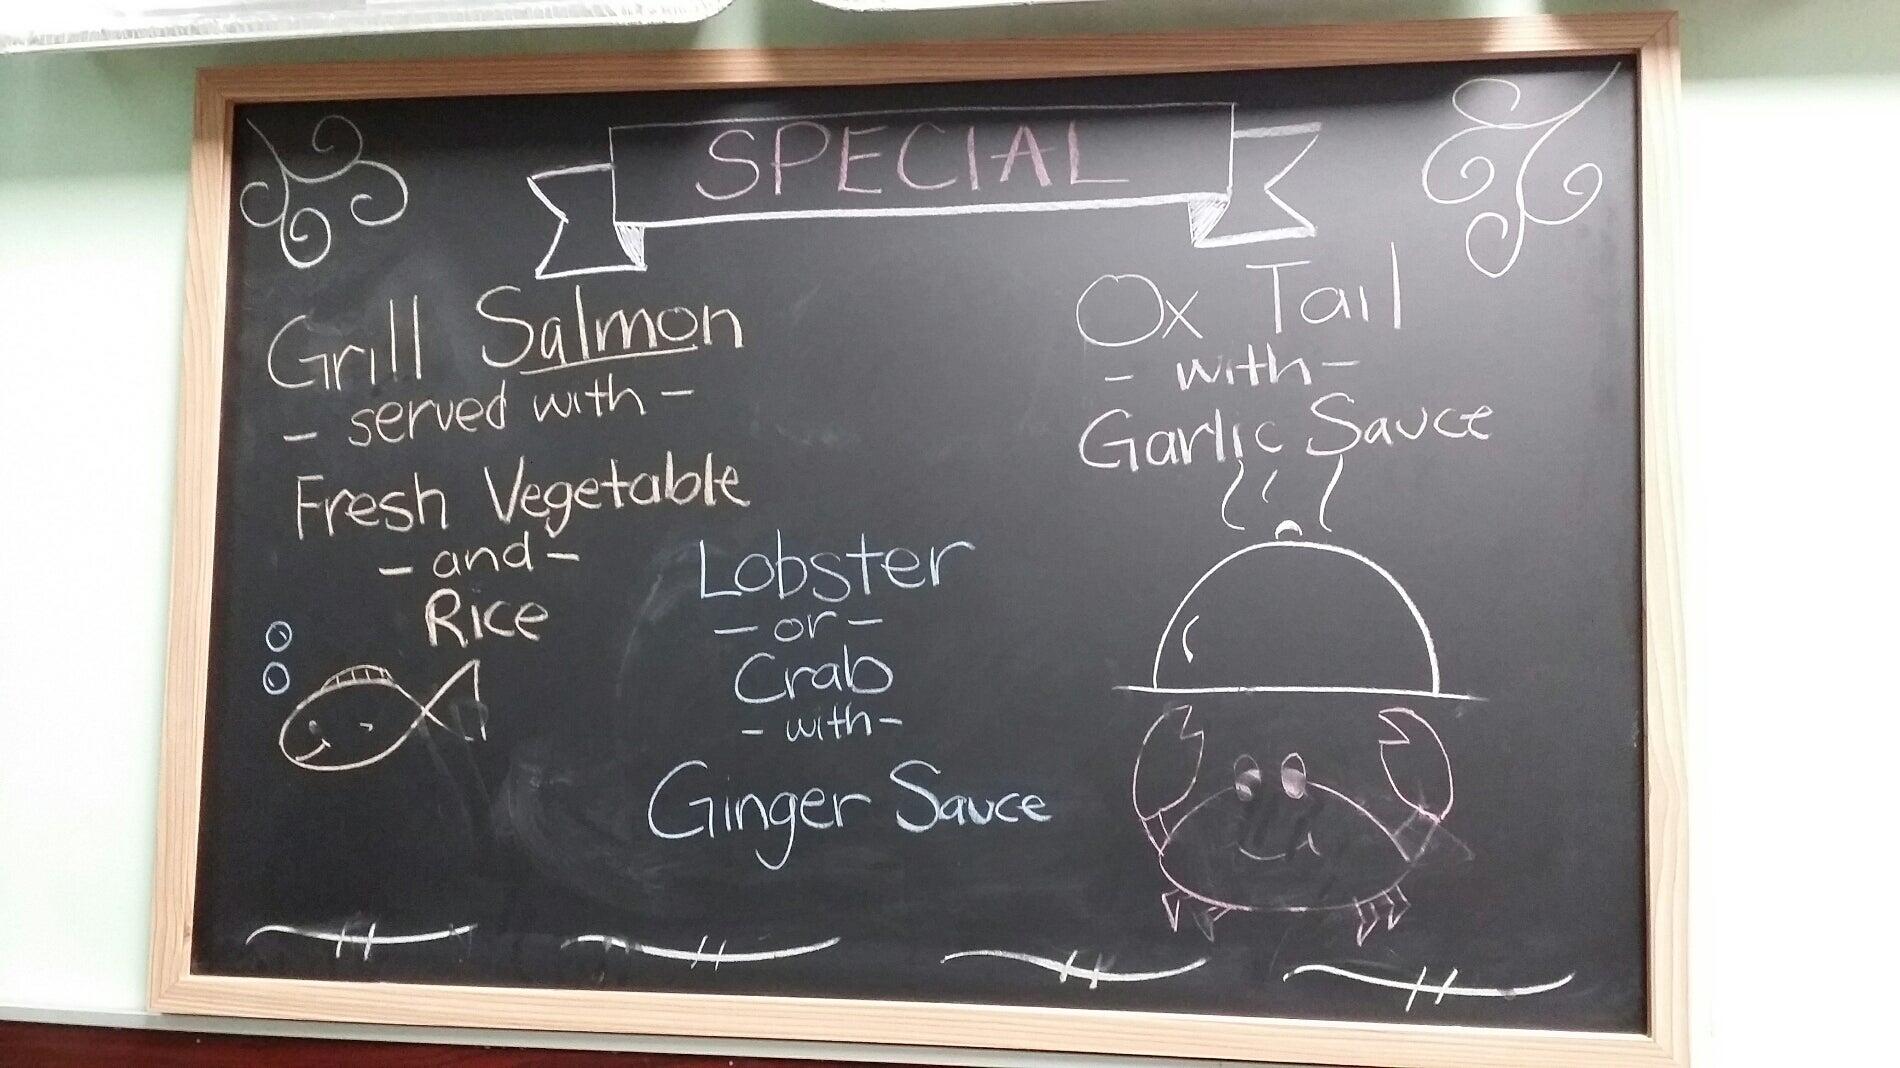 SPECIAL
Grill Salmon
- served with -
Fresh Vegetable
- and -
Rice
Lobster
- or -
Crab
- with -
Ginger Sauce
Ox Tail
- with -
Garlic Sauce